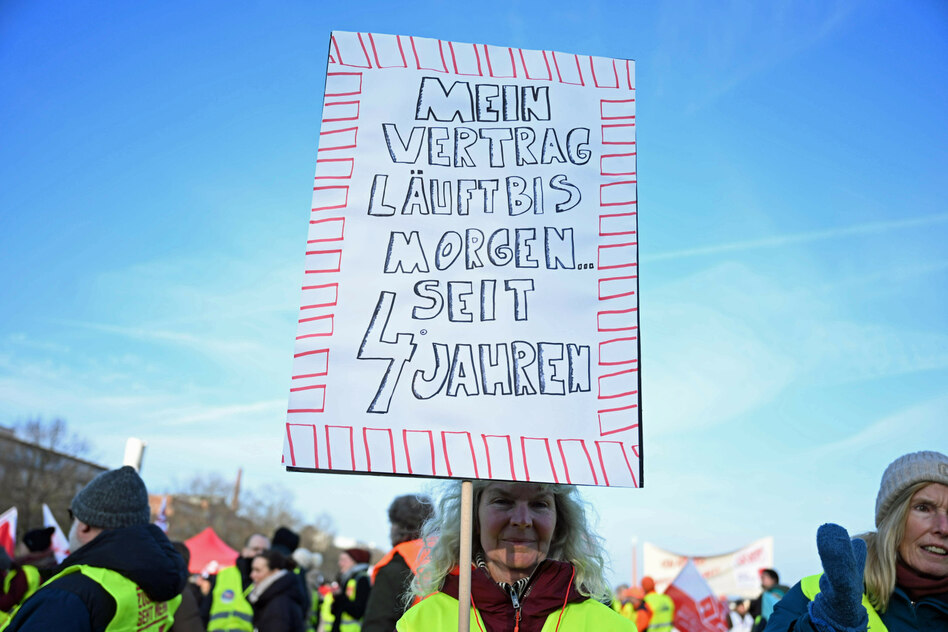 MEIN
VERTRAG
LÄUFT BIS
MORGEN...
SEIT
4 JAHREN